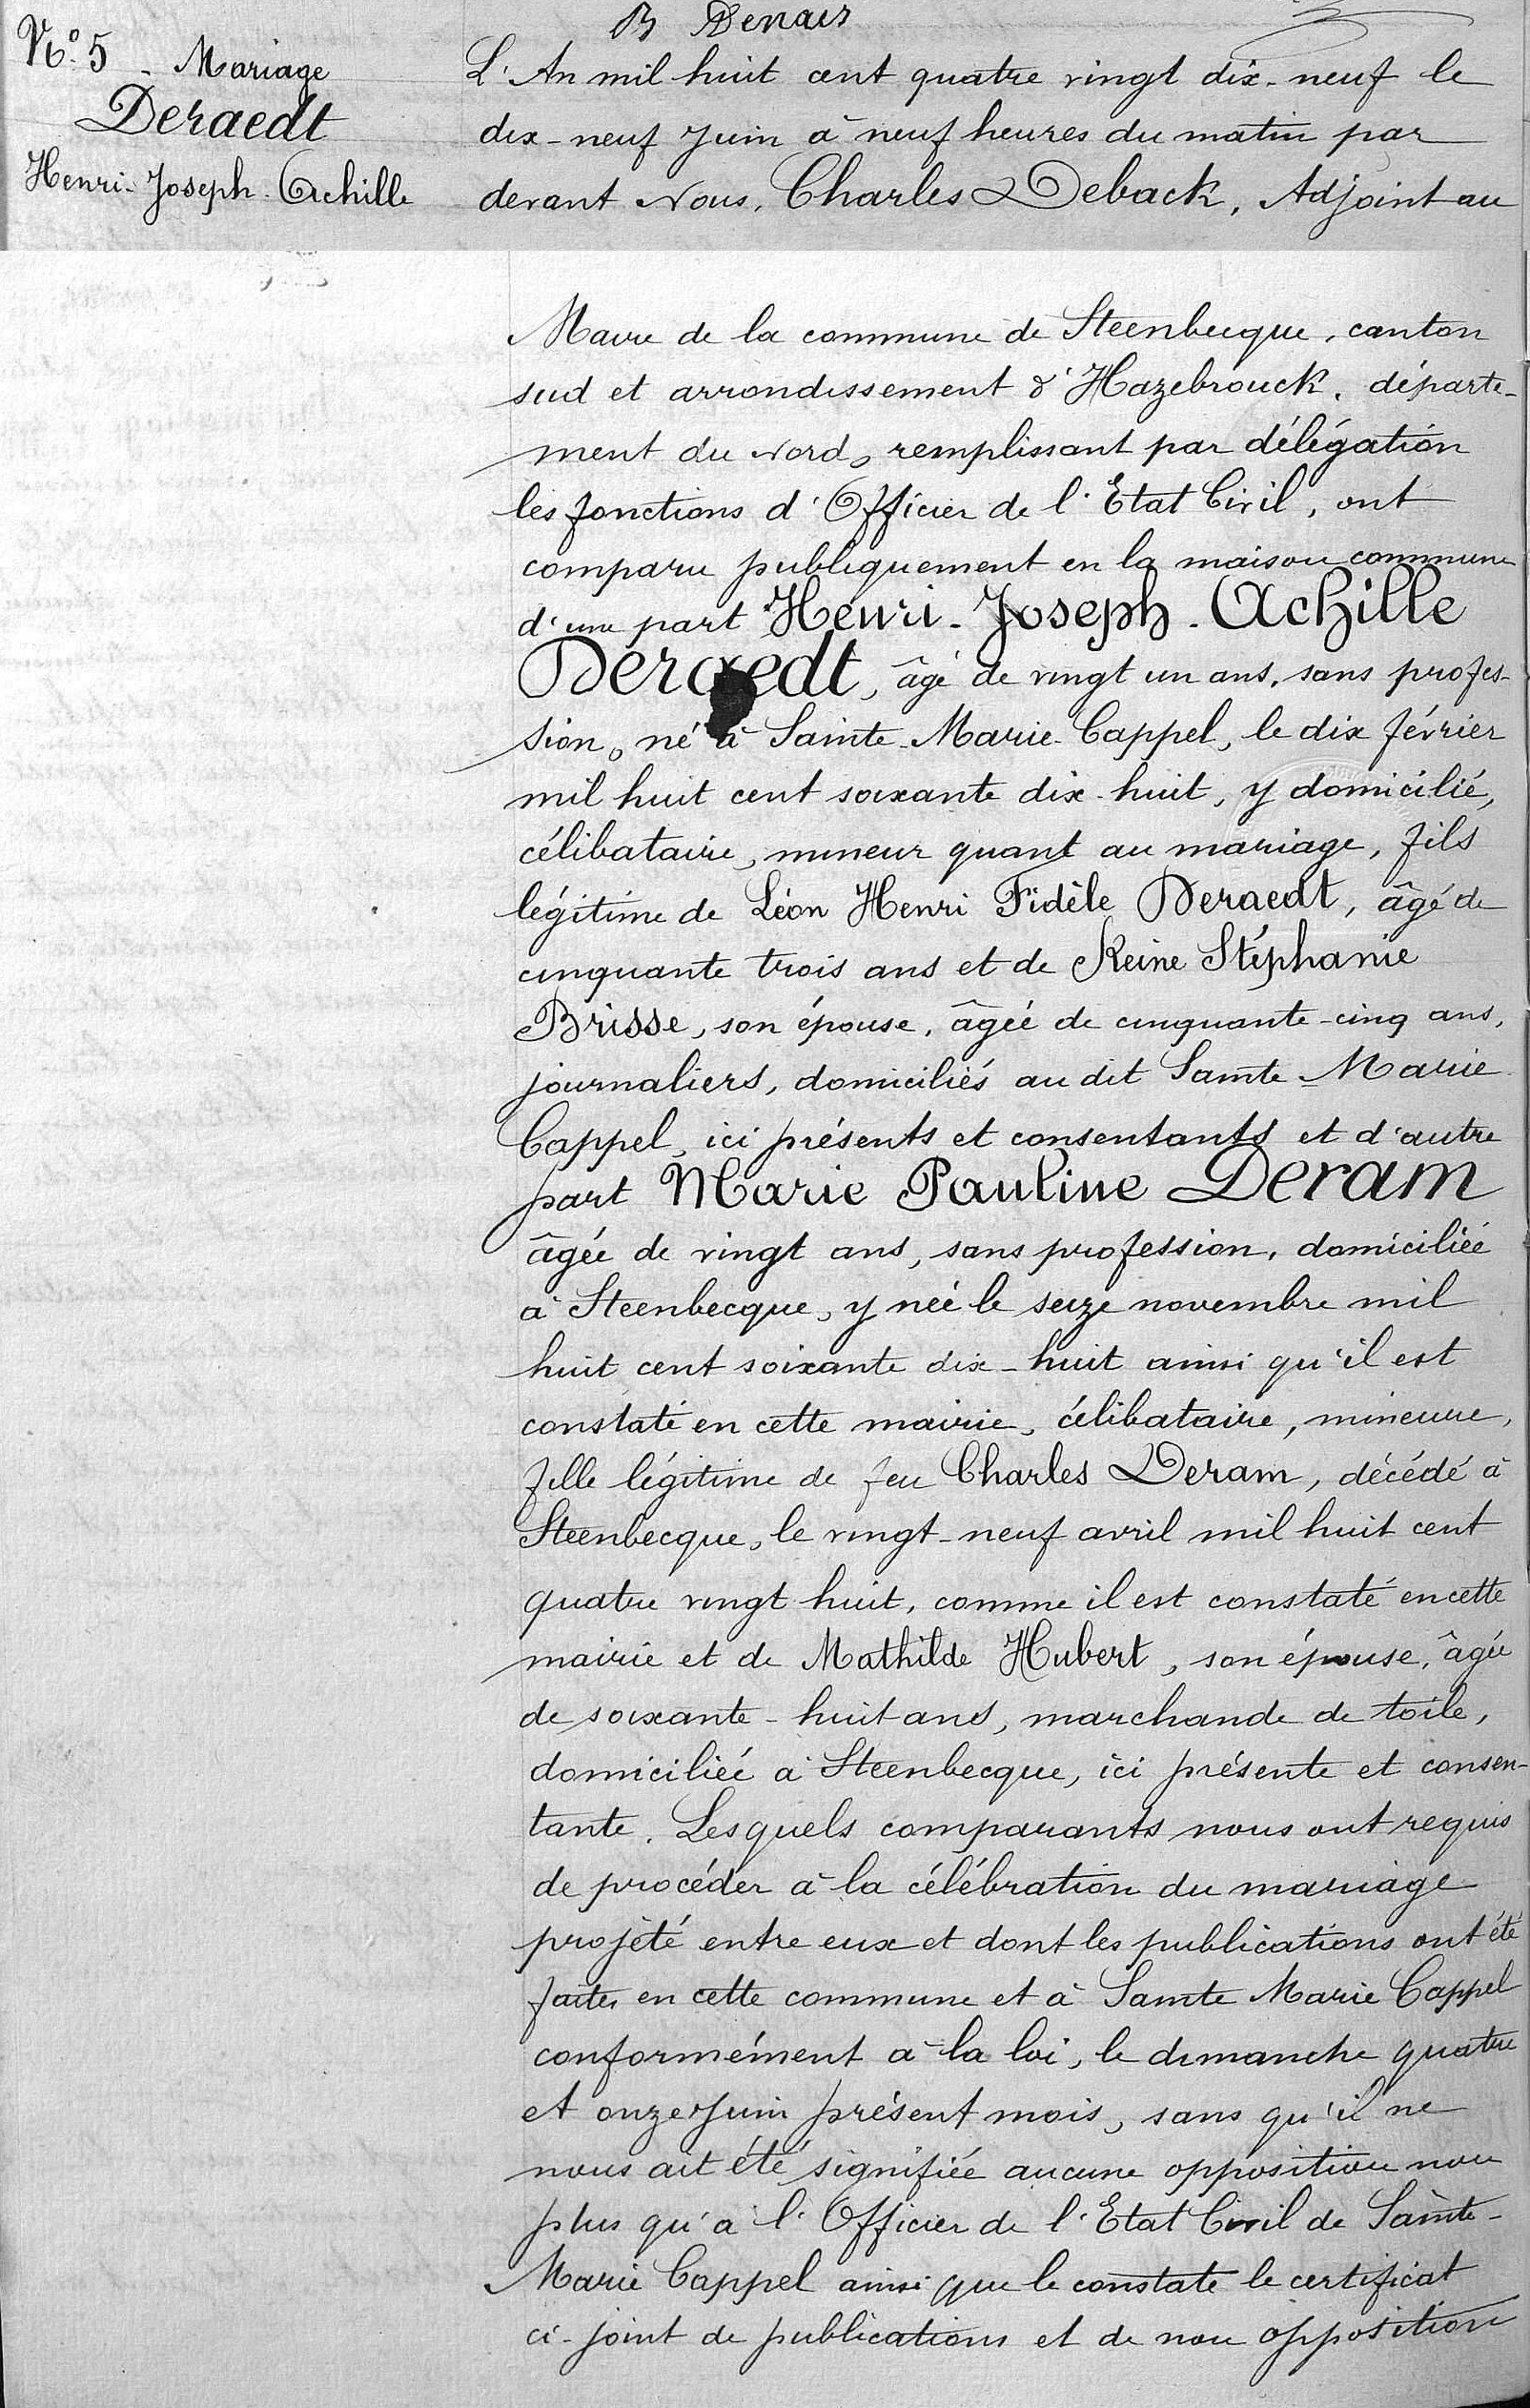 B Denaes
N° 5 - Mariage
Deraedt
Henri-Joseph-Achille
L'An mil huit cent quatre vingt dix-neuf le
dix-neuf Juin à neuf heures du matin par
devant Nous, Charles Deback, Adjoint au
Maire de la commune de Steenbecque, canton
sud et arrondissement d'Hazebrouck, départe-
ment du Nord, remplissant par délégation
les fonctions d'Officier de l'Etat Civil, ont
comparu publiquement en la maison commune
d'une part Henri-Joseph-Achille
Deraedt, âgé de vingt un ans, sans profes-
sion, né à Sainte-Marie-Cappel, le dix février
mil huit cent soixante dix-huit, y domicilié,
célibataire, mineur quant au mariage, fils
légitime de Léon Henri Fidèle Deraedt, âgé de
cinquante trois ans et de Reine Stéphanie
Brisse, son épouse, âgée de cinquante-cinq ans,
journaliers, domiciliés au dit Sainte-Marie
Cappel, ici présents et consentants et d'autre
part Marie Pauline Deram
âgée de vingt ans, sans profession, domiciliée
à Steenbecque, y née le seize novembre mil
huit cent soixante dix-huit ainsi qu'il est
constaté en cette mairie, célibataire, mineure,
fille légitime de feu Charles Deram, décédé à
Steenbecque, le vingt-neuf avril mil huit cent
quatre vingt huit, comme il est constaté en cette
mairie et de Mathilde Hubert, son épouse, âgée
de soixante-huit ans, marchande de toile,
domiciliée à Steenbecque, ici présente et consen-
tante. Lesquels comparants nous ont requis
de procéder à la célébration du mariage
projeté entre eux et dont les publications ont été
faites en cette commune et à Sainte Marie Cappel
conformément à la loi, le dimanche quatre
et onze Juin présent mois, sans qu'il ne
nous ait été signifiée aucune opposition non
plus qu'à l'Officier de l'Etat Civil de Sainte-
Marie Cappel ainsi que le constate le certificat
ci-joint de publications et de non opposition